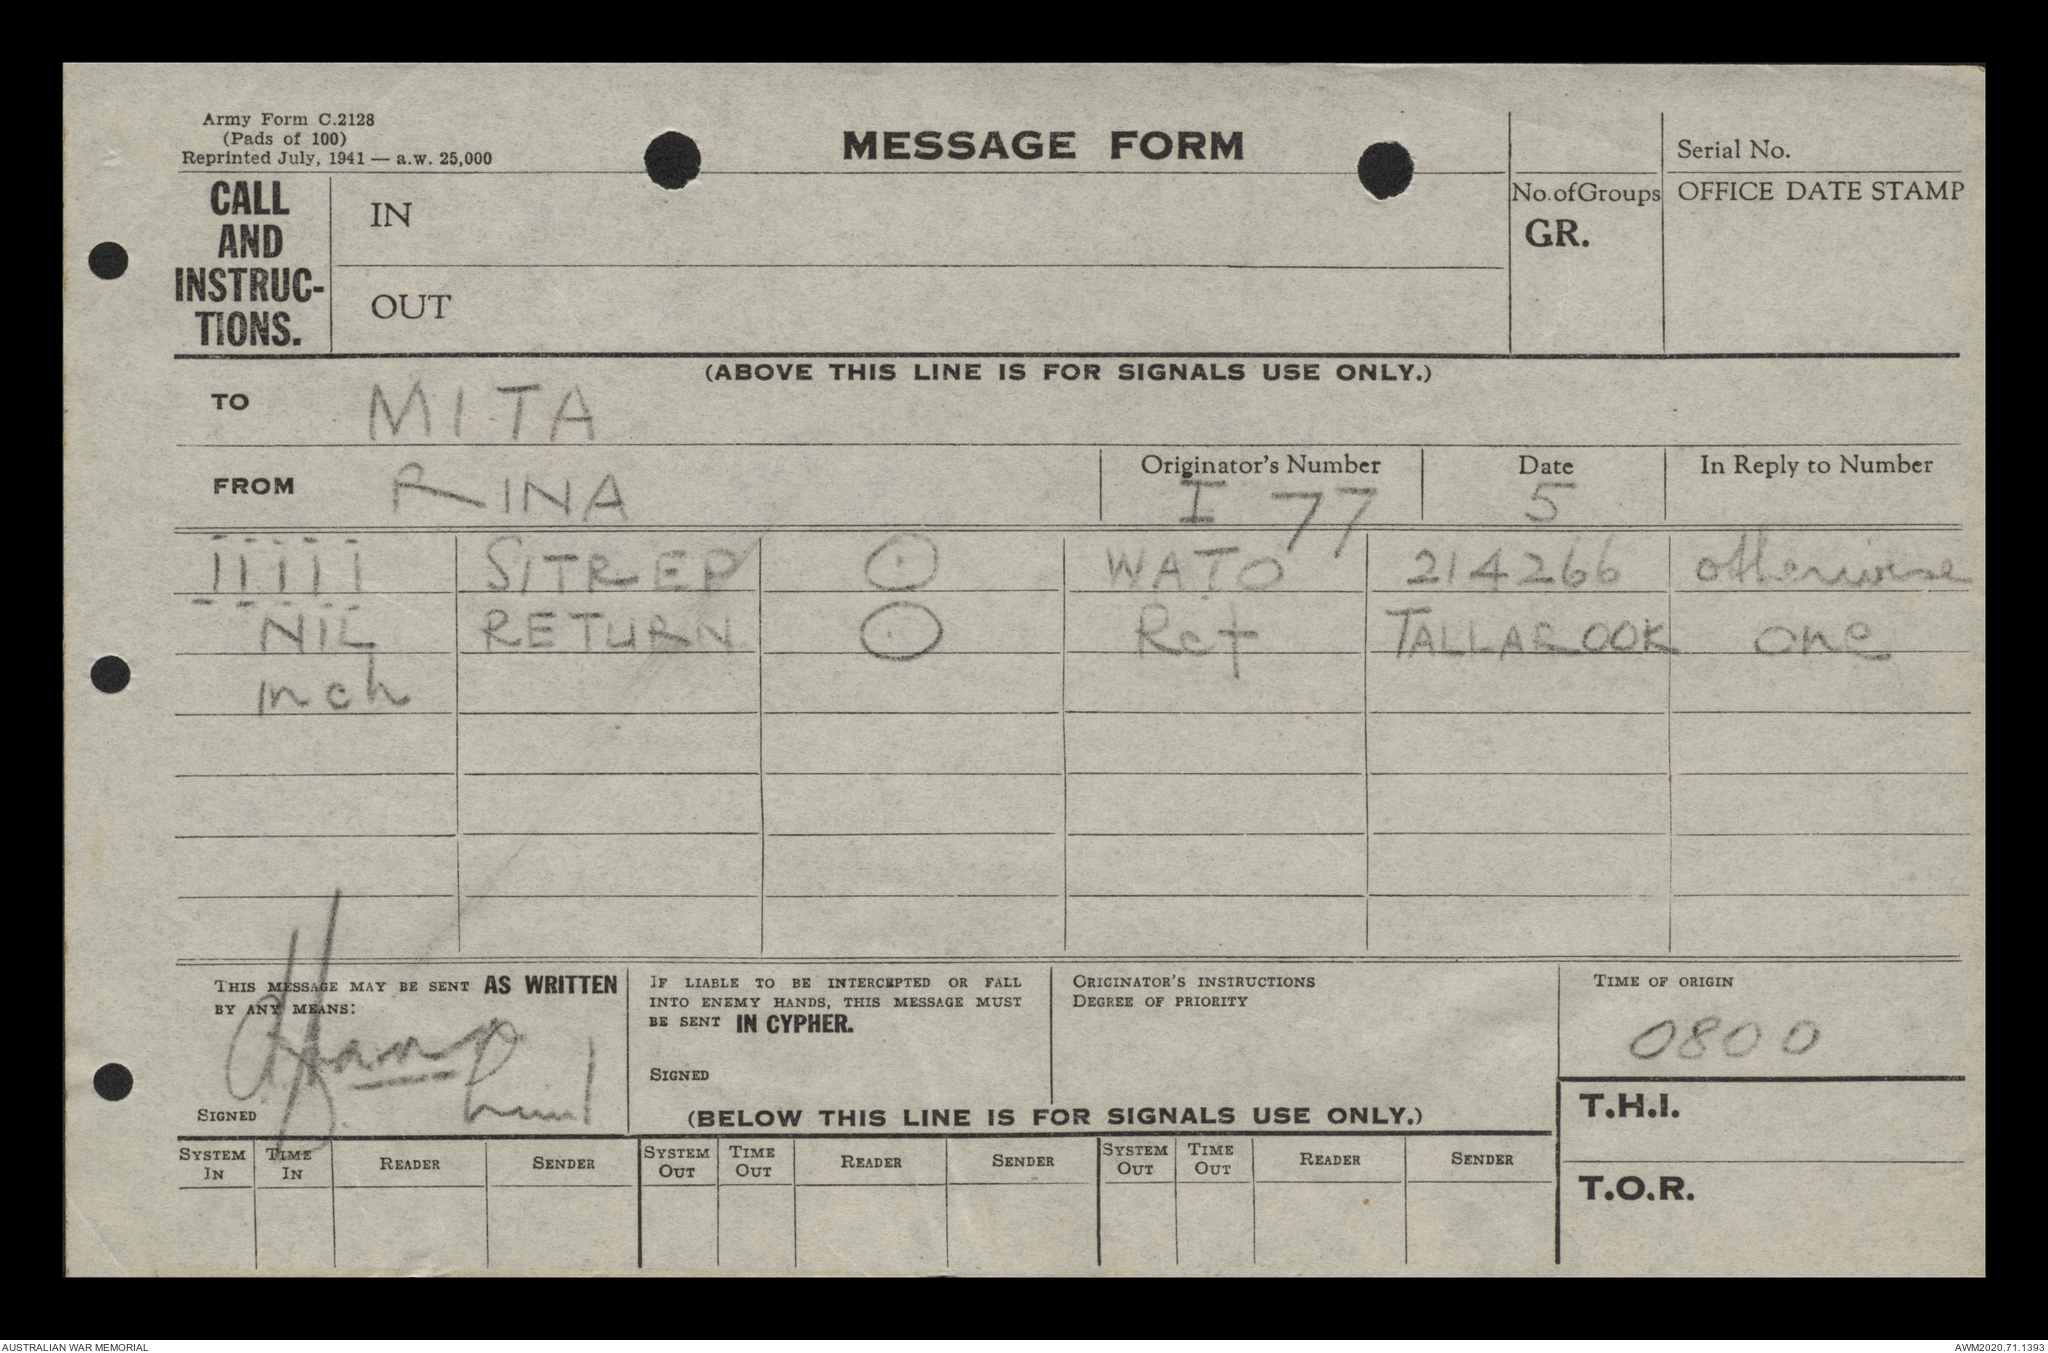 Army Form C.2128
(Pads of 100)
Reprinted July, 1941 — a.w. 25,000
MESSAGE FORM
Serial No.
CALL AND INSTRUC-TIONS.
IN
OUT
No. of Groups
GR.
OFFICE DATE STAMP
(ABOVE THIS LINE IS FOR SIGNALS USE ONLY.)
TO MITA
FROM RINA
Originator's Number I 77
Date 5
In Reply to Number
IIIII SITREP ⊙ WATO 214266 otherwise
NIL RETURN ⊙ Ref TALLAROOK one
inch
THIS MESSAGE MAY BE SENT AS WRITTEN
BY ANY MEANS:
SIGNED
IF LIABLE TO BE INTERCEPTED OR FALL
INTO ENEMY HANDS, THIS MESSAGE MUST
BE SENT IN CYPHER.
SIGNED
ORIGINATOR'S INSTRUCTIONS
DEGREE OF PRIORITY
TIME OF ORIGIN
0800
T.H.I.
T.O.R.
(BELOW THIS LINE IS FOR SIGNALS USE ONLY.)
SYSTEM IN TIME IN READER SENDER SYSTEM OUT TIME OUT READER SENDER SYSTEM OUT TIME OUT READER SENDER
AUSTRALIAN WAR MEMORIAL
AWM2020.71.1393